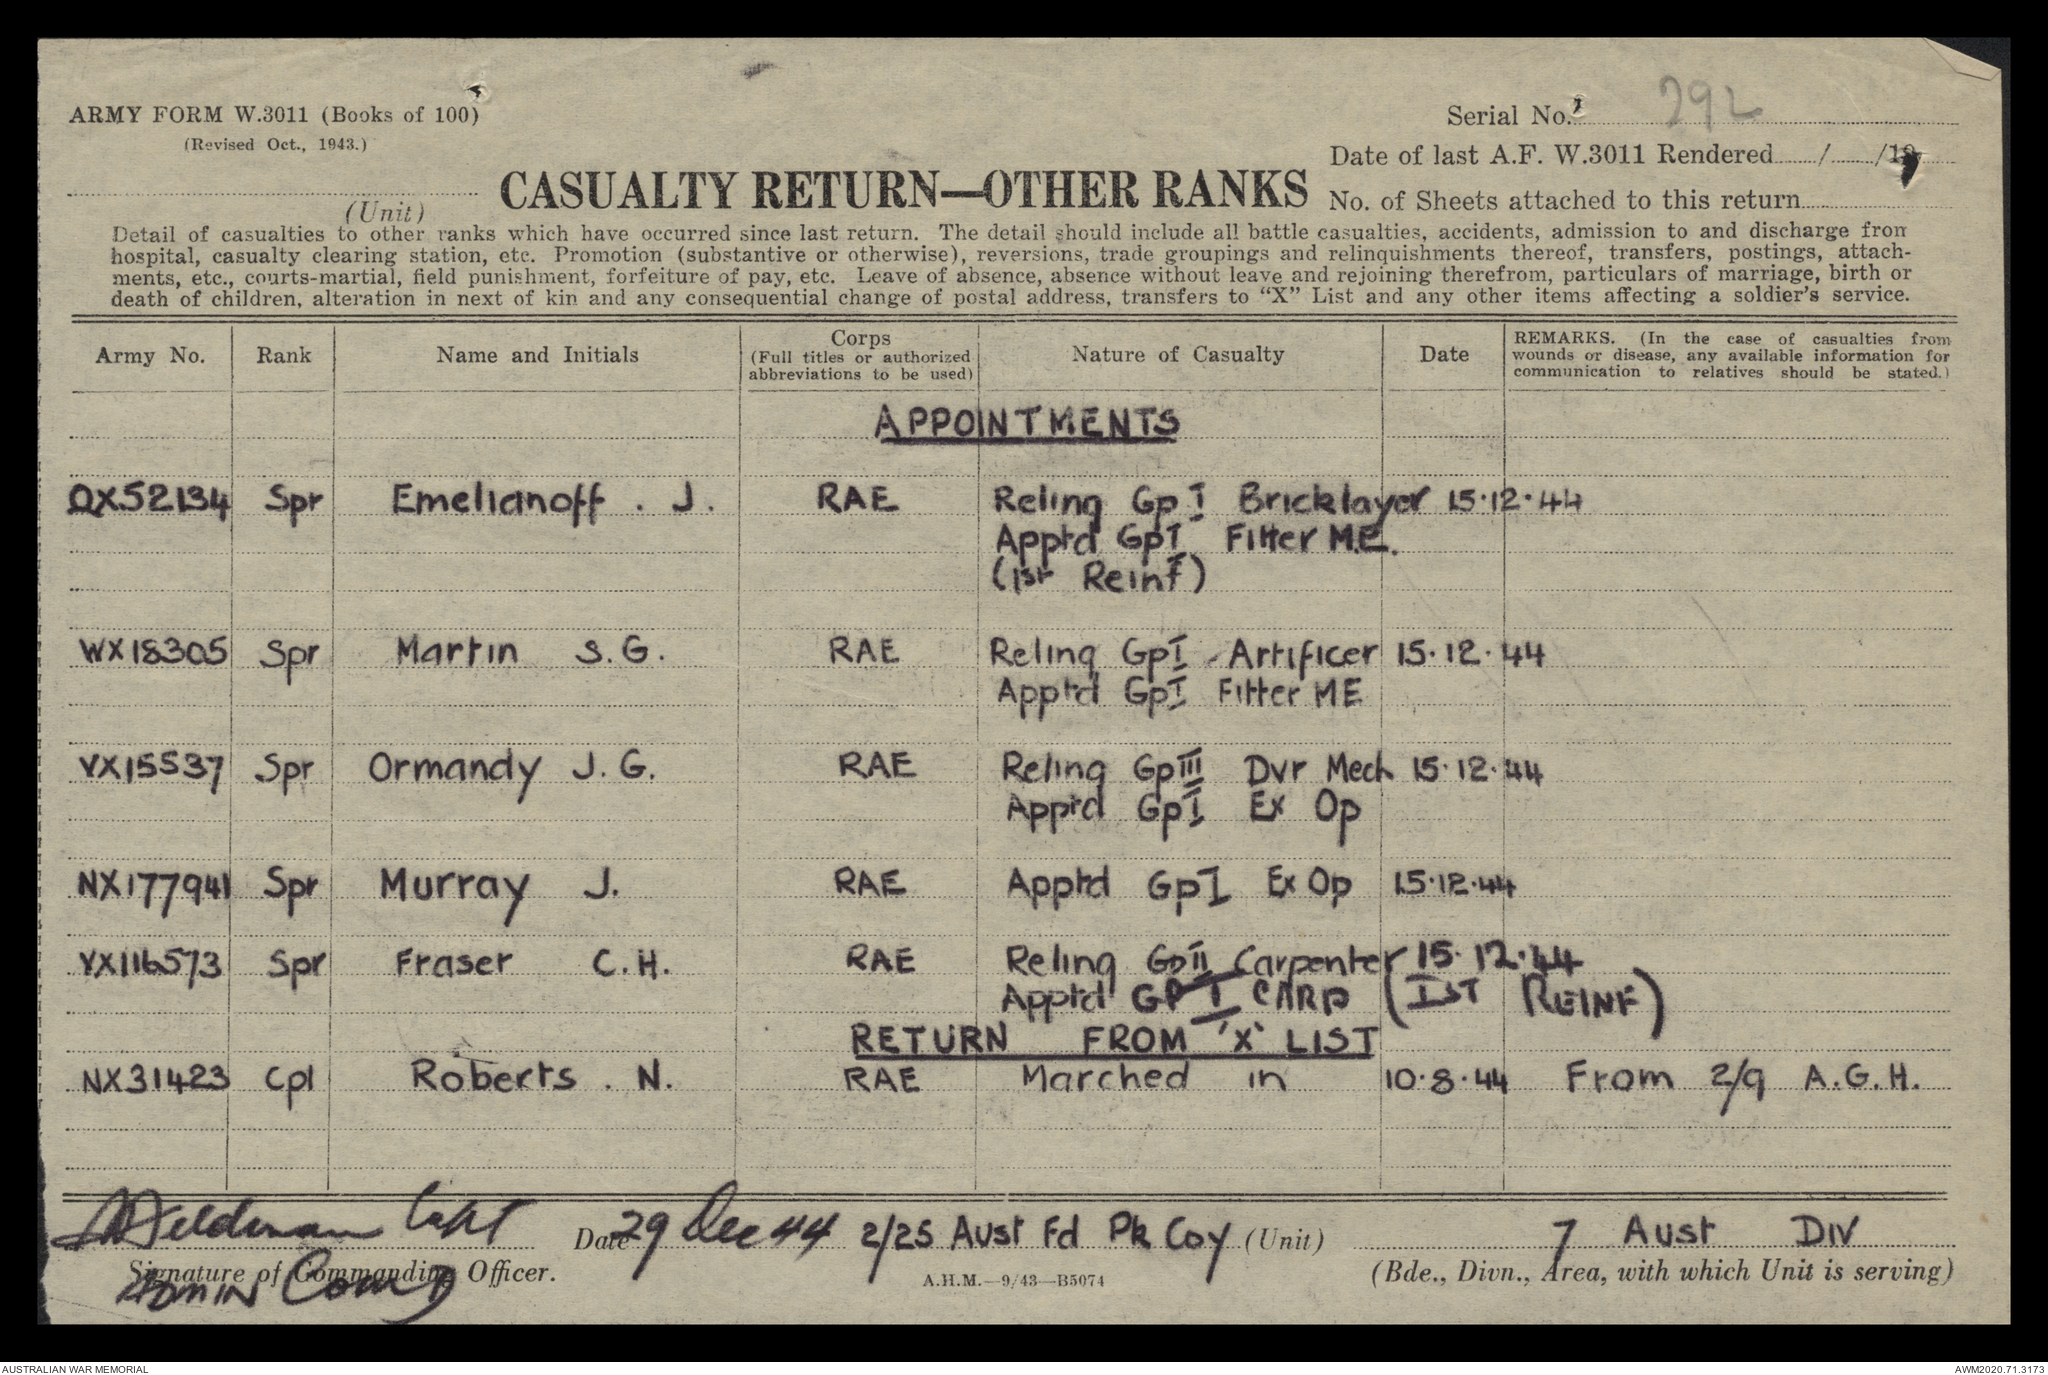 ARMY FORM W.3011 (Books of 100)
(Revised Oct., 1943.)
Serial No. 292
Date of last A.F. W.3011 Rendered / /19
CASUALTY RETURN—OTHER RANKS
No. of Sheets attached to this return
(Unit)
Detail of casualties to other ranks which have occurred since last return. The detail should include all battle casualties, accidents, admission to and discharge from
hospital, casualty clearing station, etc. Promotion (substantive or otherwise), reversions, trade groupings and relinquishments thereof, transfers, postings, attach-
ments, etc., courts-martial, field punishment, forfeiture of pay, etc. Leave of absence, absence without leave and rejoining therefrom, particulars of marriage, birth or
death of children, alteration in next of kin and any consequential change of postal address, transfers to “X” List and any other items affecting a soldier’s service.
Army No. Rank Name and Initials Corps (Full titles or authorized abbreviations to be used) Nature of Casualty Date REMARKS. (In the case of casualties from wounds or disease, any available information for communication to relatives should be stated.)
APPOINTMENTS
QX52134 Spr Emelianoff . J. RAE Relinq Gp I Bricklayer 15.12.44
Apptd Gp I Fitter M.E.
(1st Reinf)
WX18305 Spr Martin S.G. RAE Relinq Gp I Artificer 15.12.44
Apptd Gp I Fitter ME
VX15537 Spr Ormandy J.G. RAE Relinq Gp III Dvr Mech 15.12.44
Apptd Gp I Ex Op
NX177941 Spr Murray J. RAE Apptd Gp I Ex Op 15.12.44
VX116573 Spr Fraser C.H. RAE Relinq Gp II Carpenter 15.12.44
Apptd GP I CARP (IST REINF)
RETURN FROM 'X' LIST
NX31423 Cpl Roberts . N. RAE Marched in 10.8.44 From 2/9 A.G.H.
Capt Date 29 Dec 44 2/25 Aust Fd Pk Coy (Unit) 7 Aust Div
Signature of Commanding Officer. A.H.M.—9/43—B5074 (Bde., Divn., Area, with which Unit is serving)
Admin Comd
AUSTRALIAN WAR MEMORIAL AWM2020.71.3173